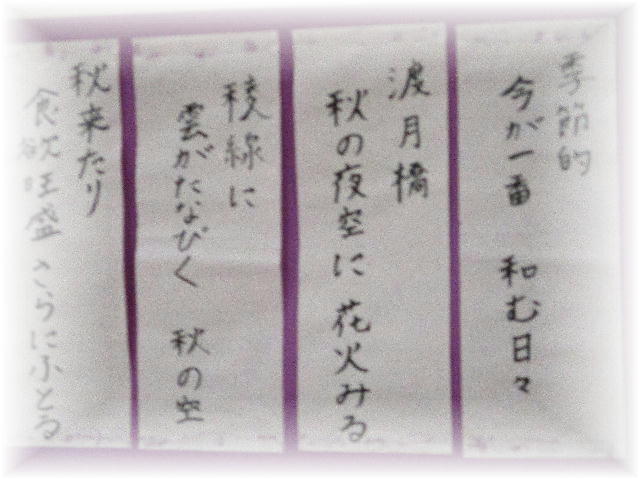 季節的
今が一番　和む日々
渡月橋
秋の夜空に　花火みる
稜線に
雲がたなびく　秋の空
秋来たり
食欲旺盛　さらにふとる